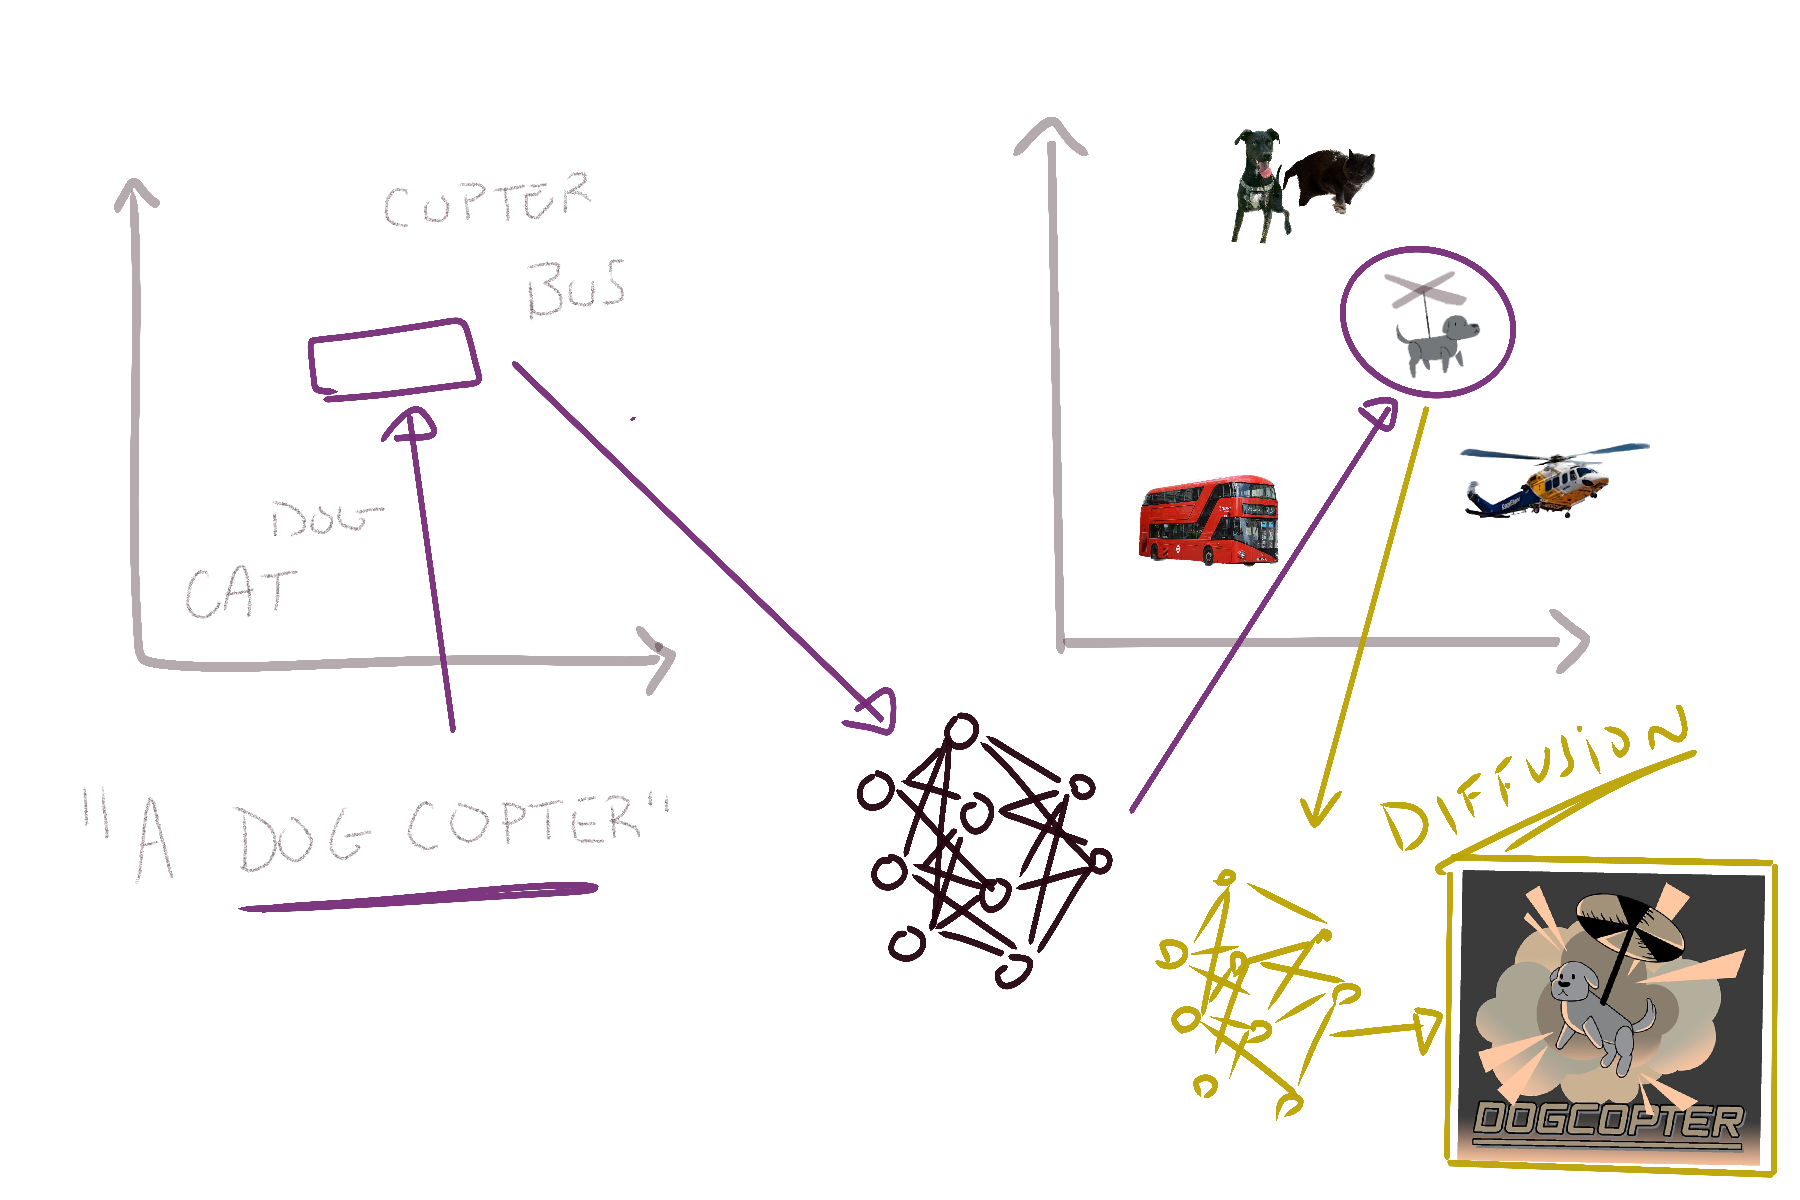 COPTER
BUS
DOG
CAT
"A DOG COPTER"
DIFFUSION
DOGCOPTER